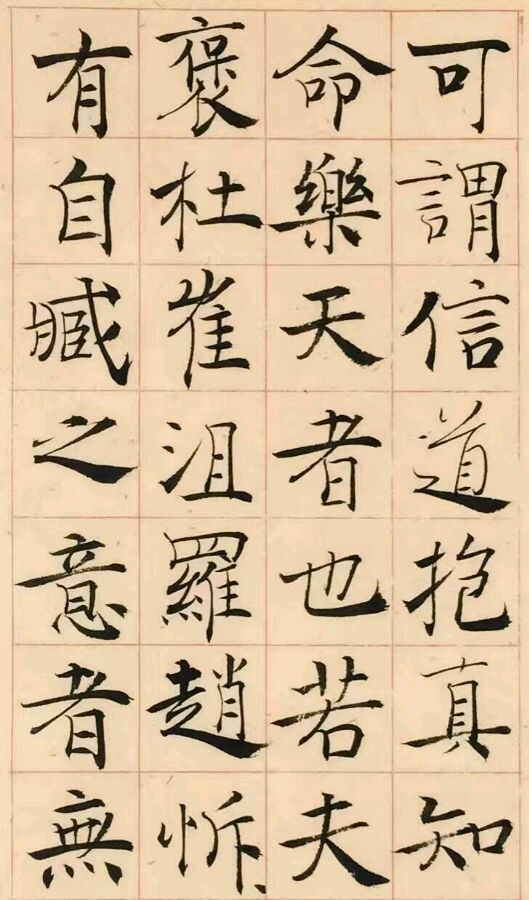 可謂信道抱真知
命樂天者也若夫
褒杜崔沮羅趙忻
有自臧之意者無